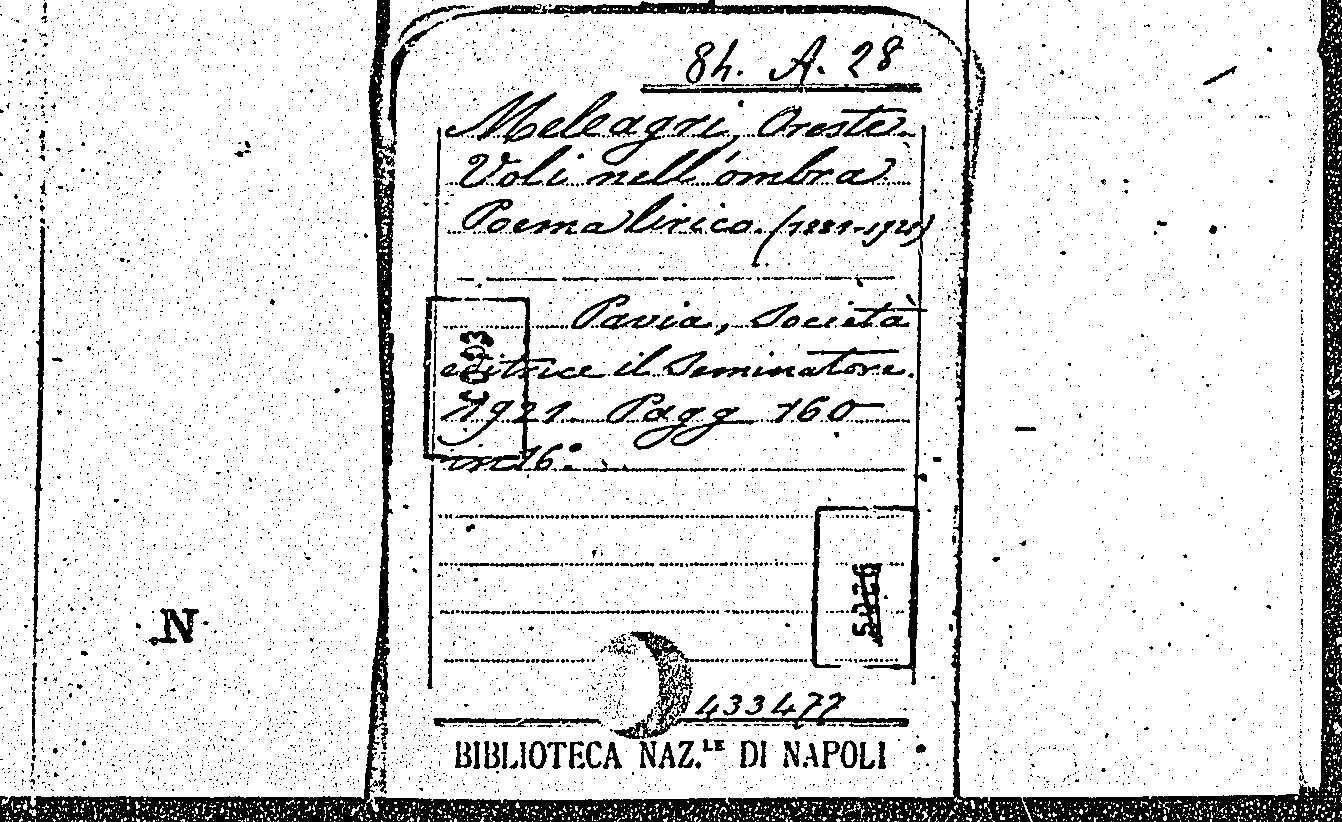 84. A. 28
Meleagri, Oreste.
Voli nell'ombra
Poema lirico. (1881-1921)
Pavia, Società
editrice il Seminatore.
1921. Pagg 160
in 16°.
5026
N
433477
BIBLIOTECA NAZ.LE DI NAPOLI